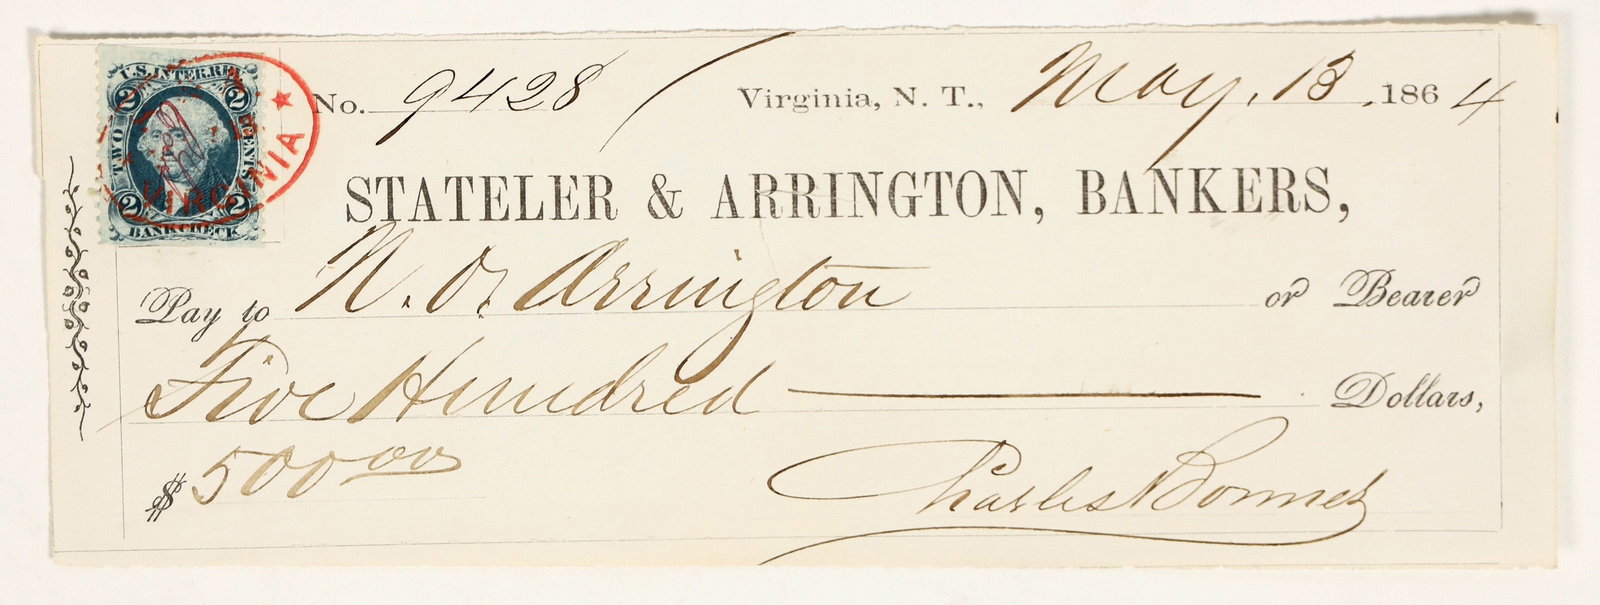 U.S. INTER. REV.
2 2
TWO CENTS
2 2
BANK CHECK
VIRGINIA
No. 9428 Virginia, N. T., May, 13, 1864
STATELER & ARRINGTON, BANKERS,
Pay to N. O. Arrington or Bearer
Five Hundred Dollars,
$ 500 00
Charles Bonner